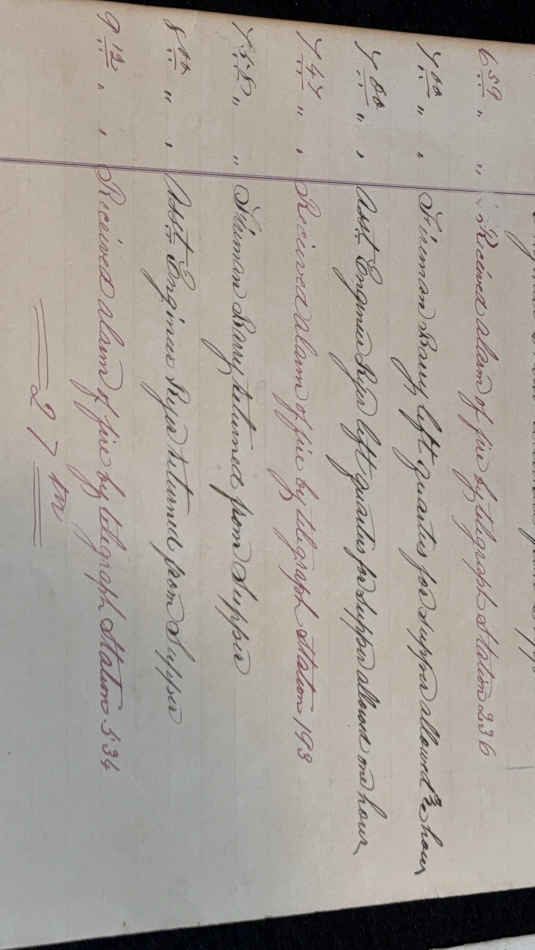 6 59 " " Received alarm of fire by telegraph Station 236
7 00 " " Fireman Leary left quarters for supper allowed ¾ hour
7 00 " " Asst Engineer Ryer left quarters for supper allowed one hour
7 47 " " Received alarm of fire by telegraph Station 193
7 45 " " Fireman Leary returned from Supper
8 00 " " Asst Engineer Ryer returned from Supper
9 12 " " Received alarm of fire by telegraph Station 534
27